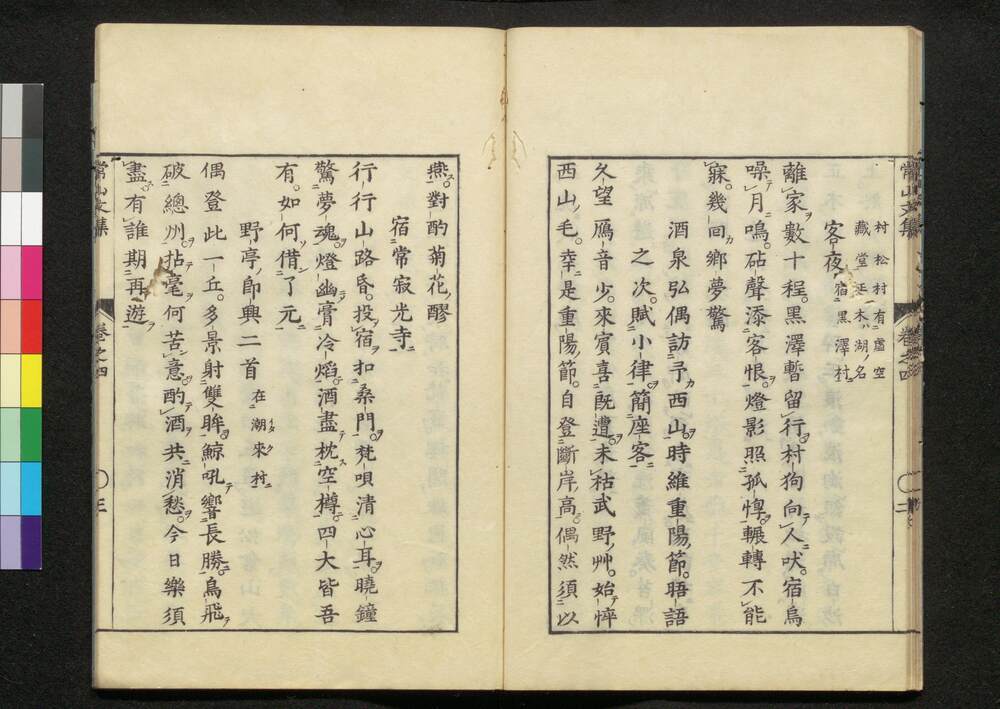 常山文集 卷之四 二
村松村有虛空
藏堂延木湖名
客夜宿黒澤村
離家數十程黒澤暫留行村狗向人吠宿鳥
噪月鳴砧聲添客恨燈影照孤惸輾轉不能
寐幾回鄉夢驚
酒泉弘偶訪予西山時維重陽節晤語
之次賦小律簡座客
久望鴈音少來賓喜既遭未枯武野艸始悴
西山毛幸是重陽節自登斷岸高偶然須以
燕對酌菊花醪
宿常寂光寺
行行山路昏投宿扣桑門梵唄清心耳曉鐘
驚夢魂燈幽膏冷焰酒盡枕空樽四大皆吾
有如何借了元
野亭即興二首 在潮來村
偶登此一丘多景射雙眸鯨吼響長勝鳥飛
破總州拈毫何苦意酌酒共消愁今日樂須
盡有誰期再遊
常山文集 卷之四 三